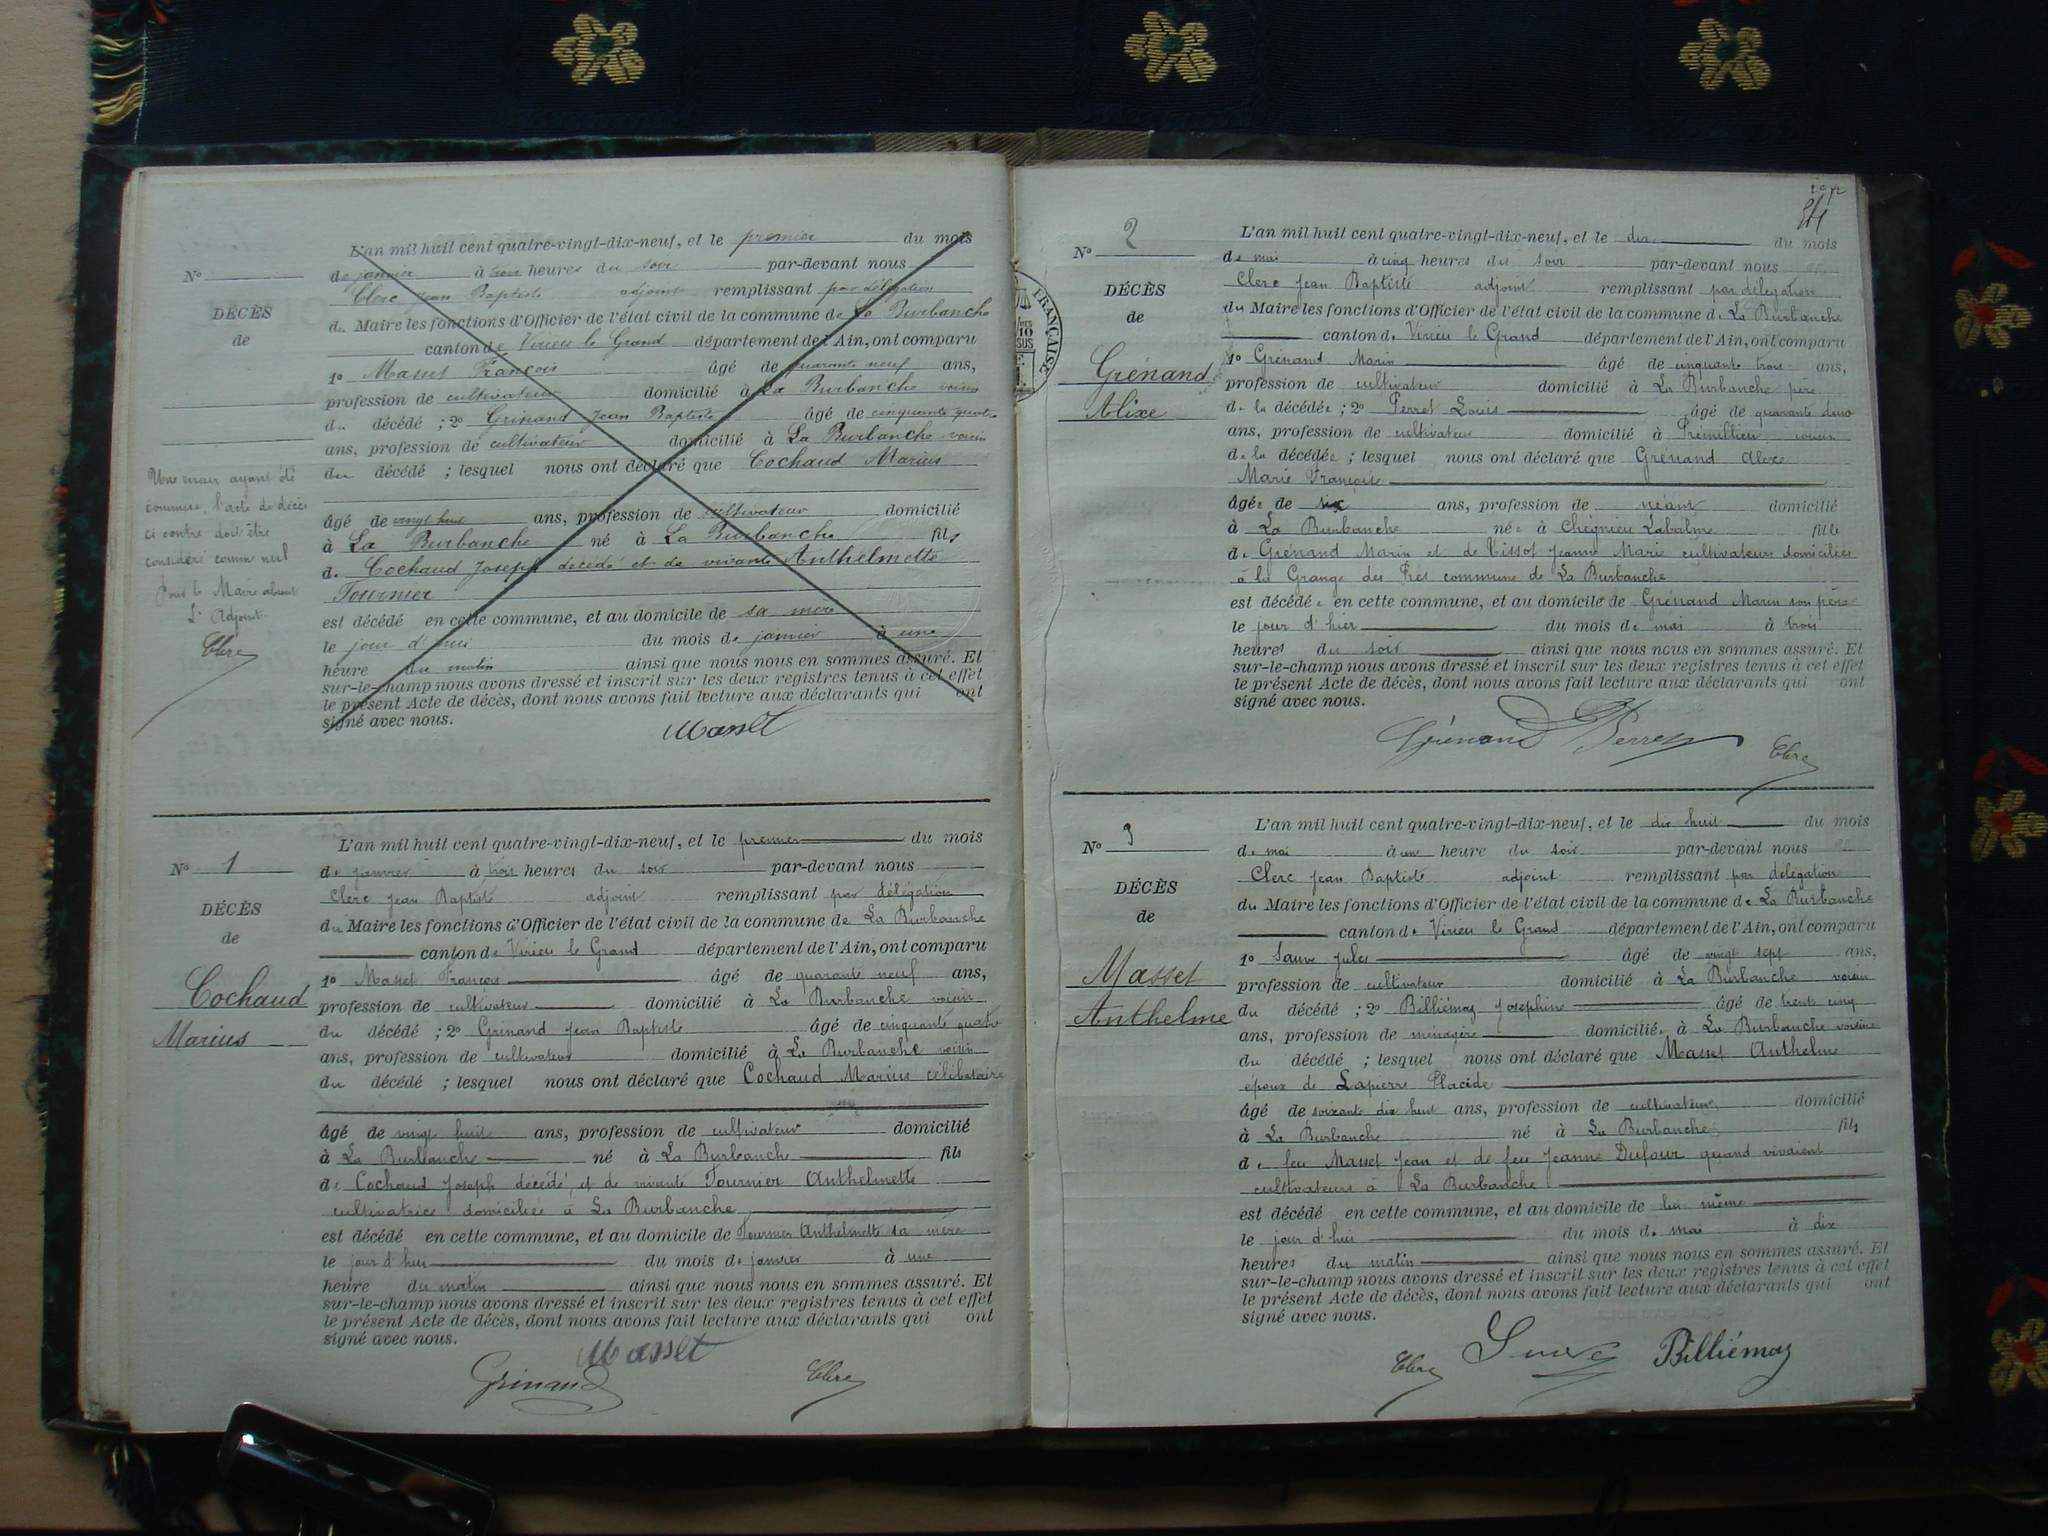 L'an mil huit cent quatre-vingt-dix-neuf, et le premier du mois
N°
de janvier à trois heures du soir par-devant nous
Clerc Jean Baptiste adjoint remplissant par délégation
DÉCÈS
du Maire les fonctions d'Officier de l'état civil de la commune de La Burbanche
de
canton de Virieu le Grand département de l'Ain, ont comparu
1o Masset François âgé de quarante neuf ans,
profession de cultivateur domicilié à La Burbanche voisin
du décédé ; 2o Grinand Jean Baptiste âgé de cinquante quatre
ans, profession de cultivateur domicilié à La Burbanche voisin
du décédé ; lesquel nous ont déclaré que Cochaud Marius
âgé de vingt huit ans, profession de cultivateur domicilié
à La Burbanche né à La Burbanche fils
de Cochaud Joseph décédé et de vivante Anthelmette
Fournier
est décédé en cette commune, et au domicile de sa mère
le jour d'hui du mois de janvier à une
heure du matin ainsi que nous nous en sommes assuré. Et
sur-le-champ nous avons dressé et inscrit sur les deux registres tenus à cet effet
le présent Acte de décès, dont nous avons fait lecture aux déclarants qui ont
signé avec nous.
Masset
Une erreur ayant été
commise, l'acte de décès
ci contre doit être
considéré comme nul
Pour le Maire absent
L'Adjoint
Clerc
L'an mil huit cent quatre-vingt-dix-neuf, et le premier du mois
N° 1
de janvier à trois heures du soir par-devant nous
Clerc Jean Baptiste adjoint remplissant par délégation
DÉCÈS
du Maire les fonctions d'Officier de l'état civil de la commune de La Burbanche
de
canton de Virieu le Grand département de l'Ain, ont comparu
Cochaud
Marius
1o Masset François âgé de quarante neuf ans,
profession de cultivateur domicilié à La Burbanche voisin
du décédé ; 2o Grinand Jean Baptiste âgé de cinquante quatre
ans, profession de cultivateur domicilié à La Burbanche voisin
du décédé ; lesquel nous ont déclaré que Cochaud Marius célibataire
âgé de vingt huit ans, profession de cultivateur domicilié
à La Burbanche né à La Burbanche fils
de Cochaud Joseph décédé, et de vivante Fournier Anthelmette
cultivatrice domiciliée à La Burbanche
est décédé en cette commune, et au domicile de Fournier Anthelmette sa mère
le jour d'hui du mois de janvier à une
heure du matin ainsi que nous nous en sommes assuré. Et
sur-le-champ nous avons dressé et inscrit sur les deux registres tenus à cet effet
le présent Acte de décès, dont nous avons fait lecture aux déclarants qui ont
signé avec nous.
Masset
Grinand Clerc
L'an mil huit cent quatre-vingt-dix-neuf, et le dix du mois
N° 2
de mai à cinq heures du soir par-devant nous
Clerc Jean Baptiste adjoint remplissant par délégation
DÉCÈS
du Maire les fonctions d'Officier de l'état civil de la commune de La Burbanche
de
canton de Virieu le Grand département de l'Ain, ont comparu
Grénand
Alixe
1o Grénand Marin âgé de cinquante trois ans,
profession de cultivateur domicilié à La Burbanche père
de la décédée ; 2o Perret Louis âgé de quarante deux
ans, profession de cultivateur domicilié à Prémillieu cousin
de la décédée ; lesquel nous ont déclaré que Grénand Alexe
Marie Françoise
âgée de six ans, profession de néant domicilié
à La Burbanche née à Cheignieu Labalme fille
de Grénand Marin et de Tissot Jeanne Marie cultivateurs domiciliés
à la Grange des Prés commune de La Burbanche
est décédée en cette commune, et au domicile de Grénand Marin son père
le jour d'hier du mois de mai à trois
heures du soir ainsi que nous nous en sommes assuré. Et
sur-le-champ nous avons dressé et inscrit sur les deux registres tenus à cet effet
le présent Acte de décès, dont nous avons fait lecture aux déclarants qui ont
signé avec nous.
Grénand Perret
Clerc
L'an mil huit cent quatre-vingt-dix-neuf, et le dix huit du mois
N° 3
de mai à une heure du soir par-devant nous
Clerc Jean Baptiste adjoint remplissant par délégation
DÉCÈS
du Maire les fonctions d'Officier de l'état civil de la commune de La Burbanche
de
canton de Virieu le Grand département de l'Ain, ont comparu
Masset
Anthelme
1o Sauve Jules âgé de vingt sept ans,
profession de cultivateur domicilié à La Burbanche voisin
du décédé ; 2o Billiémaz Joséphine âgé de trente cinq
ans, profession de ménagère domiciliée à La Burbanche voisine
du décédé ; lesquel nous ont déclaré que Masset Anthelme
époux de Lapierre Placide
âgé de soixante dix huit ans, profession de cultivateur domicilié
à La Burbanche né à La Burbanche fils
de feu Masset Jean et de feu Jeanne Dufour quand vivaient
cultivateurs à La Burbanche
est décédé en cette commune, et au domicile de lui même
le jour d'hui du mois de mai à dix
heures du matin ainsi que nous nous en sommes assuré. Et
sur-le-champ nous avons dressé et inscrit sur les deux registres tenus à cet effet
le présent Acte de décès, dont nous avons fait lecture aux déclarants qui ont
signé avec nous.
Clerc Sauve Billiémaz